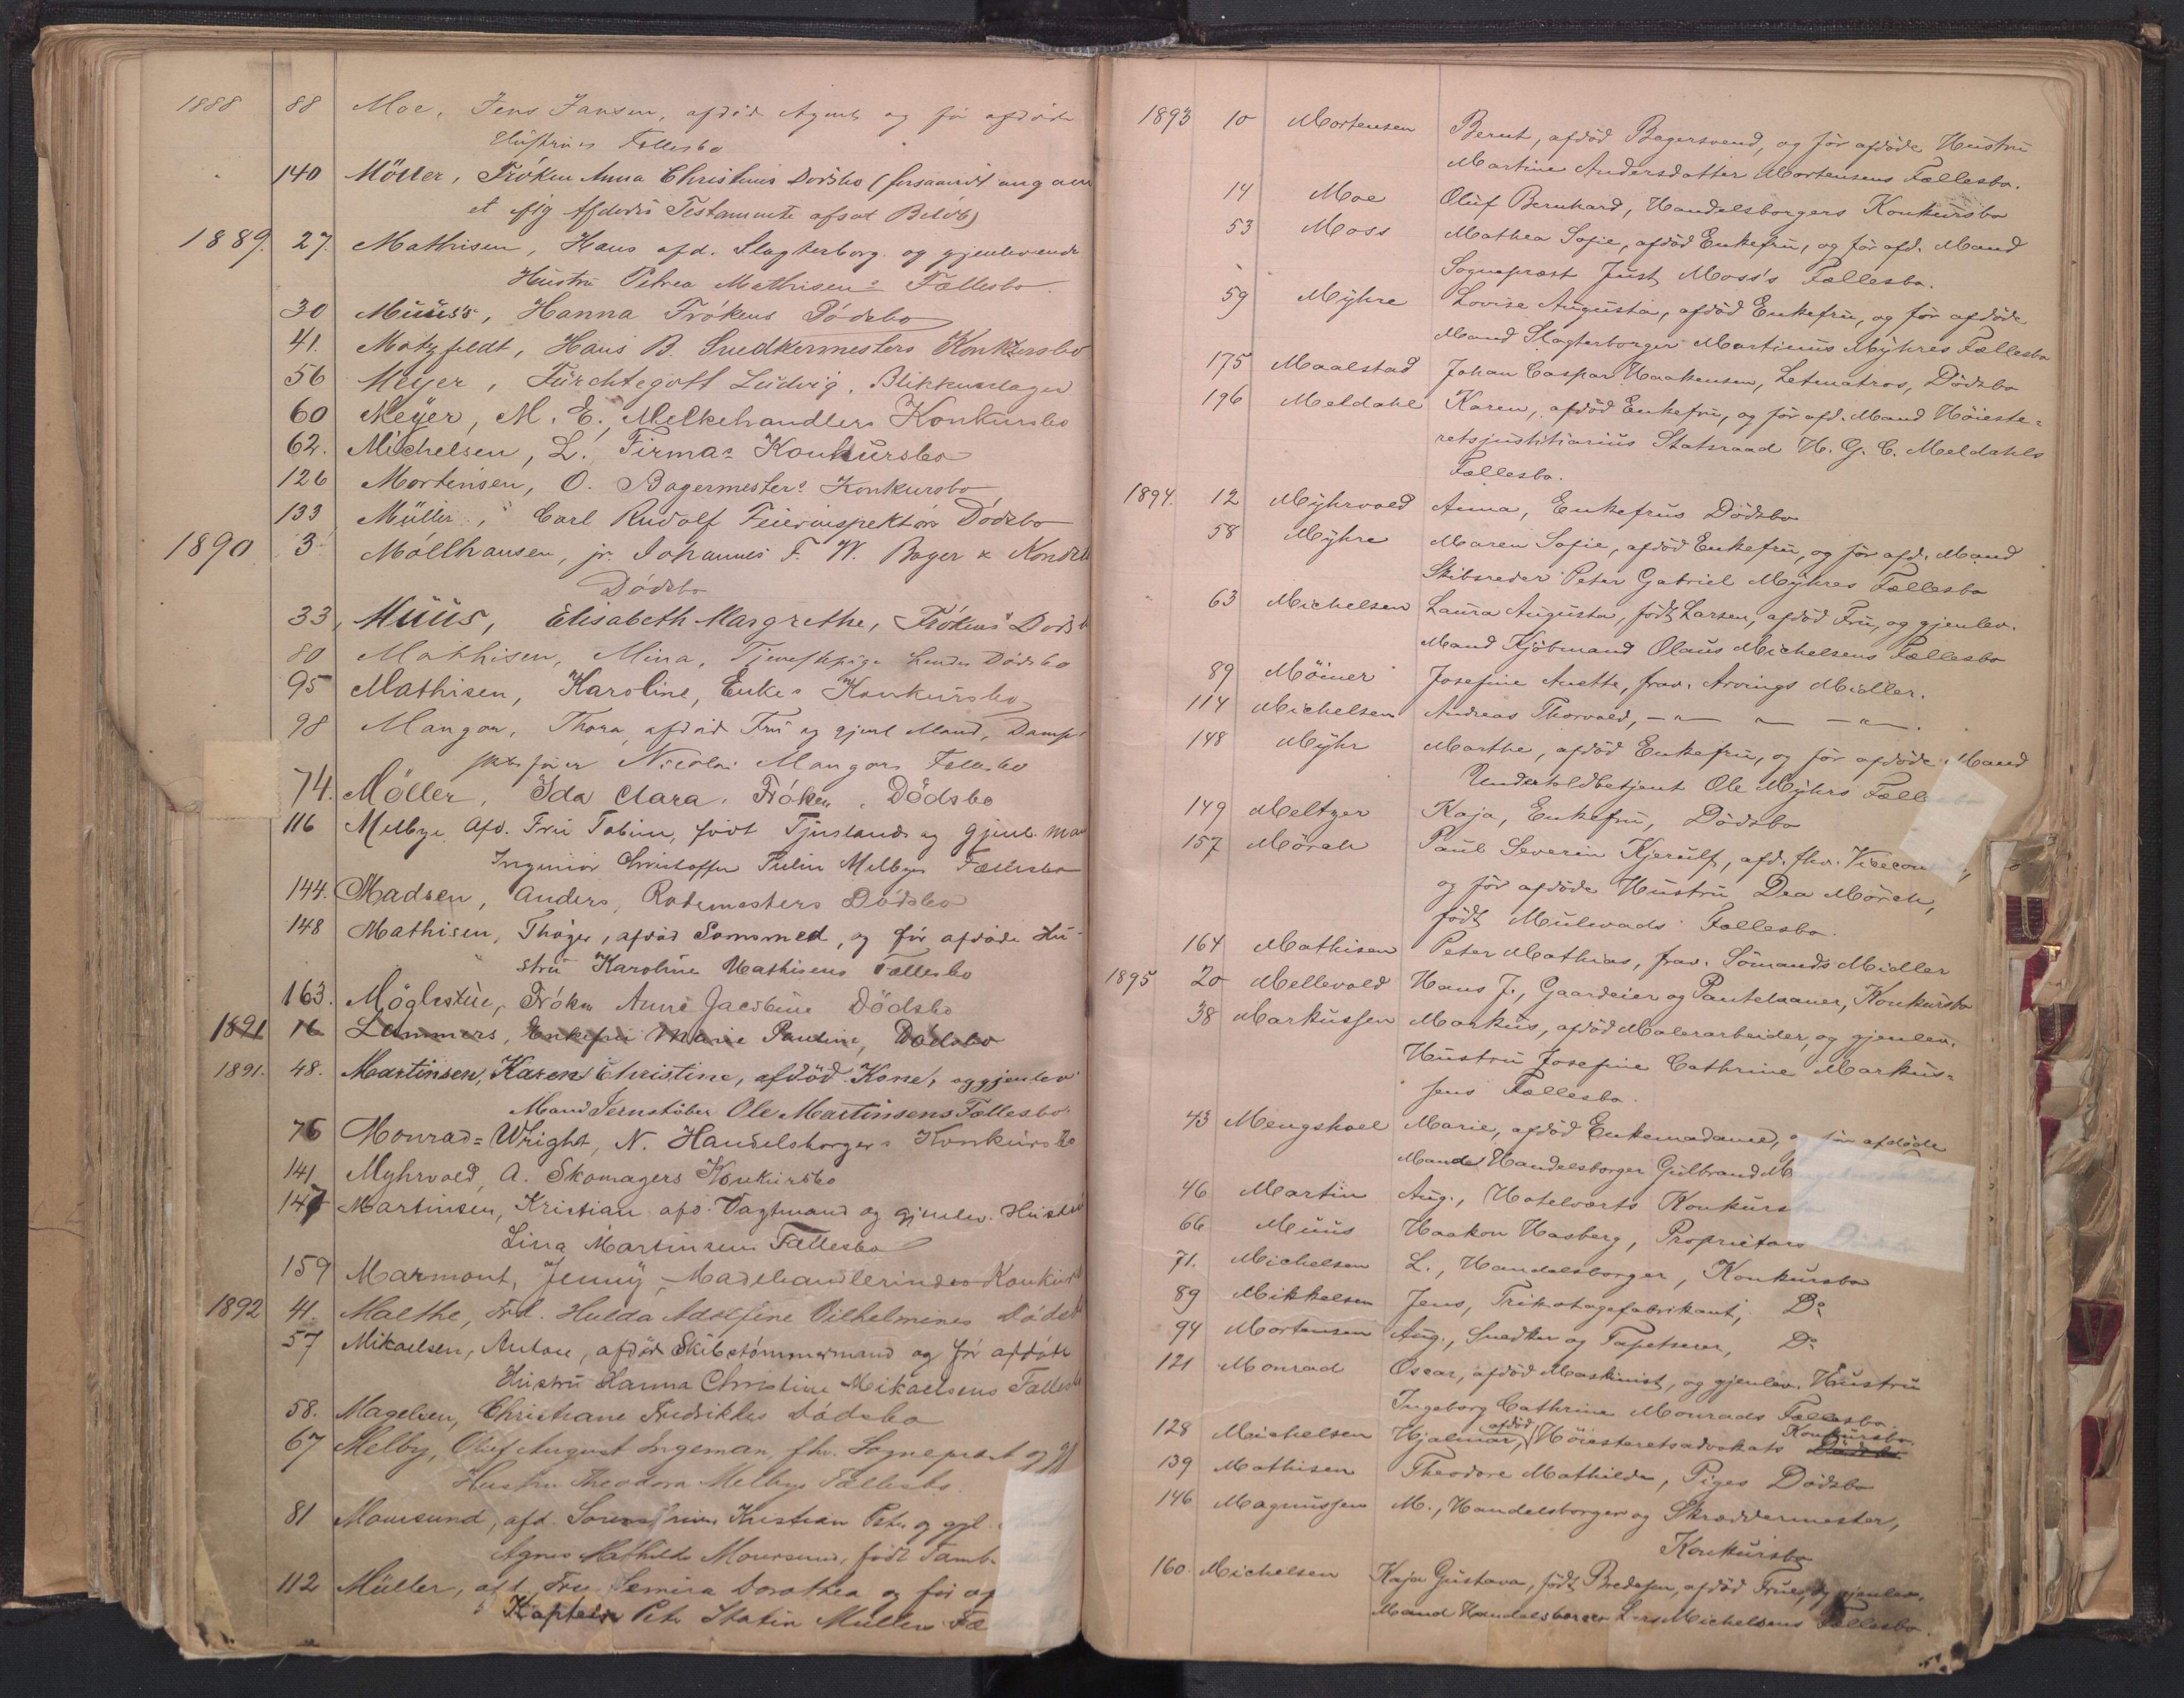 1888 88 Moe, Jens Jansen, afdöd Agent og før afdöde
Hustrus Fællesbo
140 Möller, Fröken Anna Christines Dödsbo (forsaavidt ang aar
et Afdödes Testamente afsat Belöb)
1889. 27. Mathisen, Hans afd. Slagterborg. og gjenlevende
Hustru Petrea Mathisens Fællesbo.
30 Muus's, Hanna Frökens Dödsbo
41. Motzfeldt, Hans B. Snedkermesters Konkursbo
56 Meyer, Fürchtegott Ludvig, Blikkenslager
60 Meyer, M. E. Melkehandlers Konkursbo
62. Michelsen, L. Firmas Konkursbo
126 Mortensen, O. Bagermesters Konkursbo
133 Müller, Carl Rudolf Feierinspektörs Dödsbo
1890 3 Möllhausen, jr. Johannes F. W. Bager & Kondit
Dödsbo
33, Muus, Elisabeth Margrethe, Frökens Dödsb
80 Mathisen, Mina, Tjenestepige hendes Dödsbo
95 Mathisen, Karoline, Enkes Konkursbo
98 Mangor, Thora, afdöd Fru og gjenl Mand, Damp
skibsfører Nicolai Mangors Fællesbo
74. Möller, Ida Clara, Fröken, Dödsbo
116 Melbye, Afd. Fru Tobine, født Tjuslands og gjenl. Man
Ingeniör Christoffer Melbyes Fællesbo
144. Madsen, Anders, Rodemesters Dödsbo
148 Mathisen, Thöger, afdöd Somsmed, og før afdöde Hu-
stru Karoline Mathisens Fællesbo
163. Möglestue, Fröken Anne Jacobine Dödsbo
1891 16 Lammers, Enkefru Marie Pauline, Dödsbo
1891. 48. Martinsen, Karen Christine, afdöd Kone, og gjenlev
Mand Jernstöber Ole Martinsens Fællesbo.
76 Monrad=Wright, N. Handelsborgers Konkursbo
141 Myhrvold, A. Skomagers Konkursbo
147 Martinsen, Kristian afd. Vagtmand og gjenlev. Hustru
Lina Martinsens Fællesbo
159 Marmont, Jenny, Modehandlerindes Konkurs
1892 41. Malthe, Frk. Hulda Adolfine Vilhelmines Dödsb
57 Mikaelsen, Antone, afdöd Skibstömmermand og før afdöde
Hustru Hanna Christine Mikaelsens Fælles
58. Magelsen, Christiane Fredrikkes Dödsbo
67 Melby, Oluf August Ingeman, fhv. Sogneprest og gj
Hustru Theodora Melbys Fællesbo.
81 Moursund, afd. Sorenskriver Kristian Peter og gjl.
Agnes Mathilde Moursund, født Tamb
112 Müller, afd. Fru Semira Dorothea og før af
Kaptein Peter Statin Müllers Fæ
1893 10 Mortensen Bernt, afdöd Bagersvend, og før afdöde Hustru
Martine Andersdatter Mortensens Fællesbo.
14 Moe Oluf Bernhard, Handelsborgers Konkursbo
53 Moss Mathea Sofie, afdöd Enkefru, og før afd. Mand
Sogneprest Just Moss's Fællesbo.
59 Myhre Lovise Augusta, afdöd Enkefru, og før afdöde
Mand Slagterborger Martinus Myhres Fællesbo
175 Maalstad Johan Caspar Haakensen, Letmatros, Dödsbo
196 Meldahl Karen, afdöd Enkefru, og før afd. Mand Höieste=
retsjustitiarius Statsraad H. G. C. Meldahls
Fællesbo.
1894. 12 Myhrvold Anna, Enkefrus Dödsbo
58 Myhre Maren Sofie, afdöd Enkefru, og før afd. Mand
Skibsreder Peter Gabriel Myhres Fællesbo
63 Michelsen Laura Augusta, født Larsen, afdöd Fru, og gjenlev.
Mand Kjöbmand Olaus Michelsens Fællesbo
89 Möiner Josefine Anette, frav. Arvings Midler.
114 Michelsen Andreas Thorvald, —"— " —"—.
148 Myhr Marthe, afdöd Enkefru, og før afdöde Mand
Undertoldbetjent Ole Myhrs Fælle
149 Meltzer Kaja, Enkefru, Dödsbo
157 Mörch Paul Severin Kjerulf, afd. fhv. Vicecon
og før afdöde Hustru Dea Mörch,
født Mulvads Fællesbo.
164 Mathisen Peter Mathias, frav. Sömands Midler
1895 20 Mellevold Hans J., Gaardeier og Pantelaaner, Konkursbo
38 Markussen Markus, afdöd Malerarbeider, og gjenlev.
Hustru Josefine Cathrine Markus=
sens Fællesbo.
43 Mengshoel Marie, afdöd Enkemadame, og før afdöde
Mands Handelsborger Gulbrand M
46 Martin Aug., Hotelværts Konkurs
66 Muus Haakon Hasberg, Proprietærs D
71. Michelsen L., Handelsborger, Konkursbo
89 Mikkelsen Jens, Trikotagefabrikant, Do
94 Mortensen Aug., Snedker og Tapetserer, Do
121 Monrad Oscar, afdöd Maskinist, og gjenlev. Hustru
Ingeborg Cathrine Monrads Fællesbo.
128 Michelsen Hjalmar, afdöd Höiesteretsadvokats Dödsbo Konkursbo
139 Mathisen Theodore Mathilde, Piges Dödsbo
146 Magnussen M., Handelsborger og Skræddermester,
Konkursbo
160. Michelsen Kaja Gustava, født Bredesen, afdöd Frue, og gjenlev.
Mand Handelsborger Lars Michelsens Fællesbo.